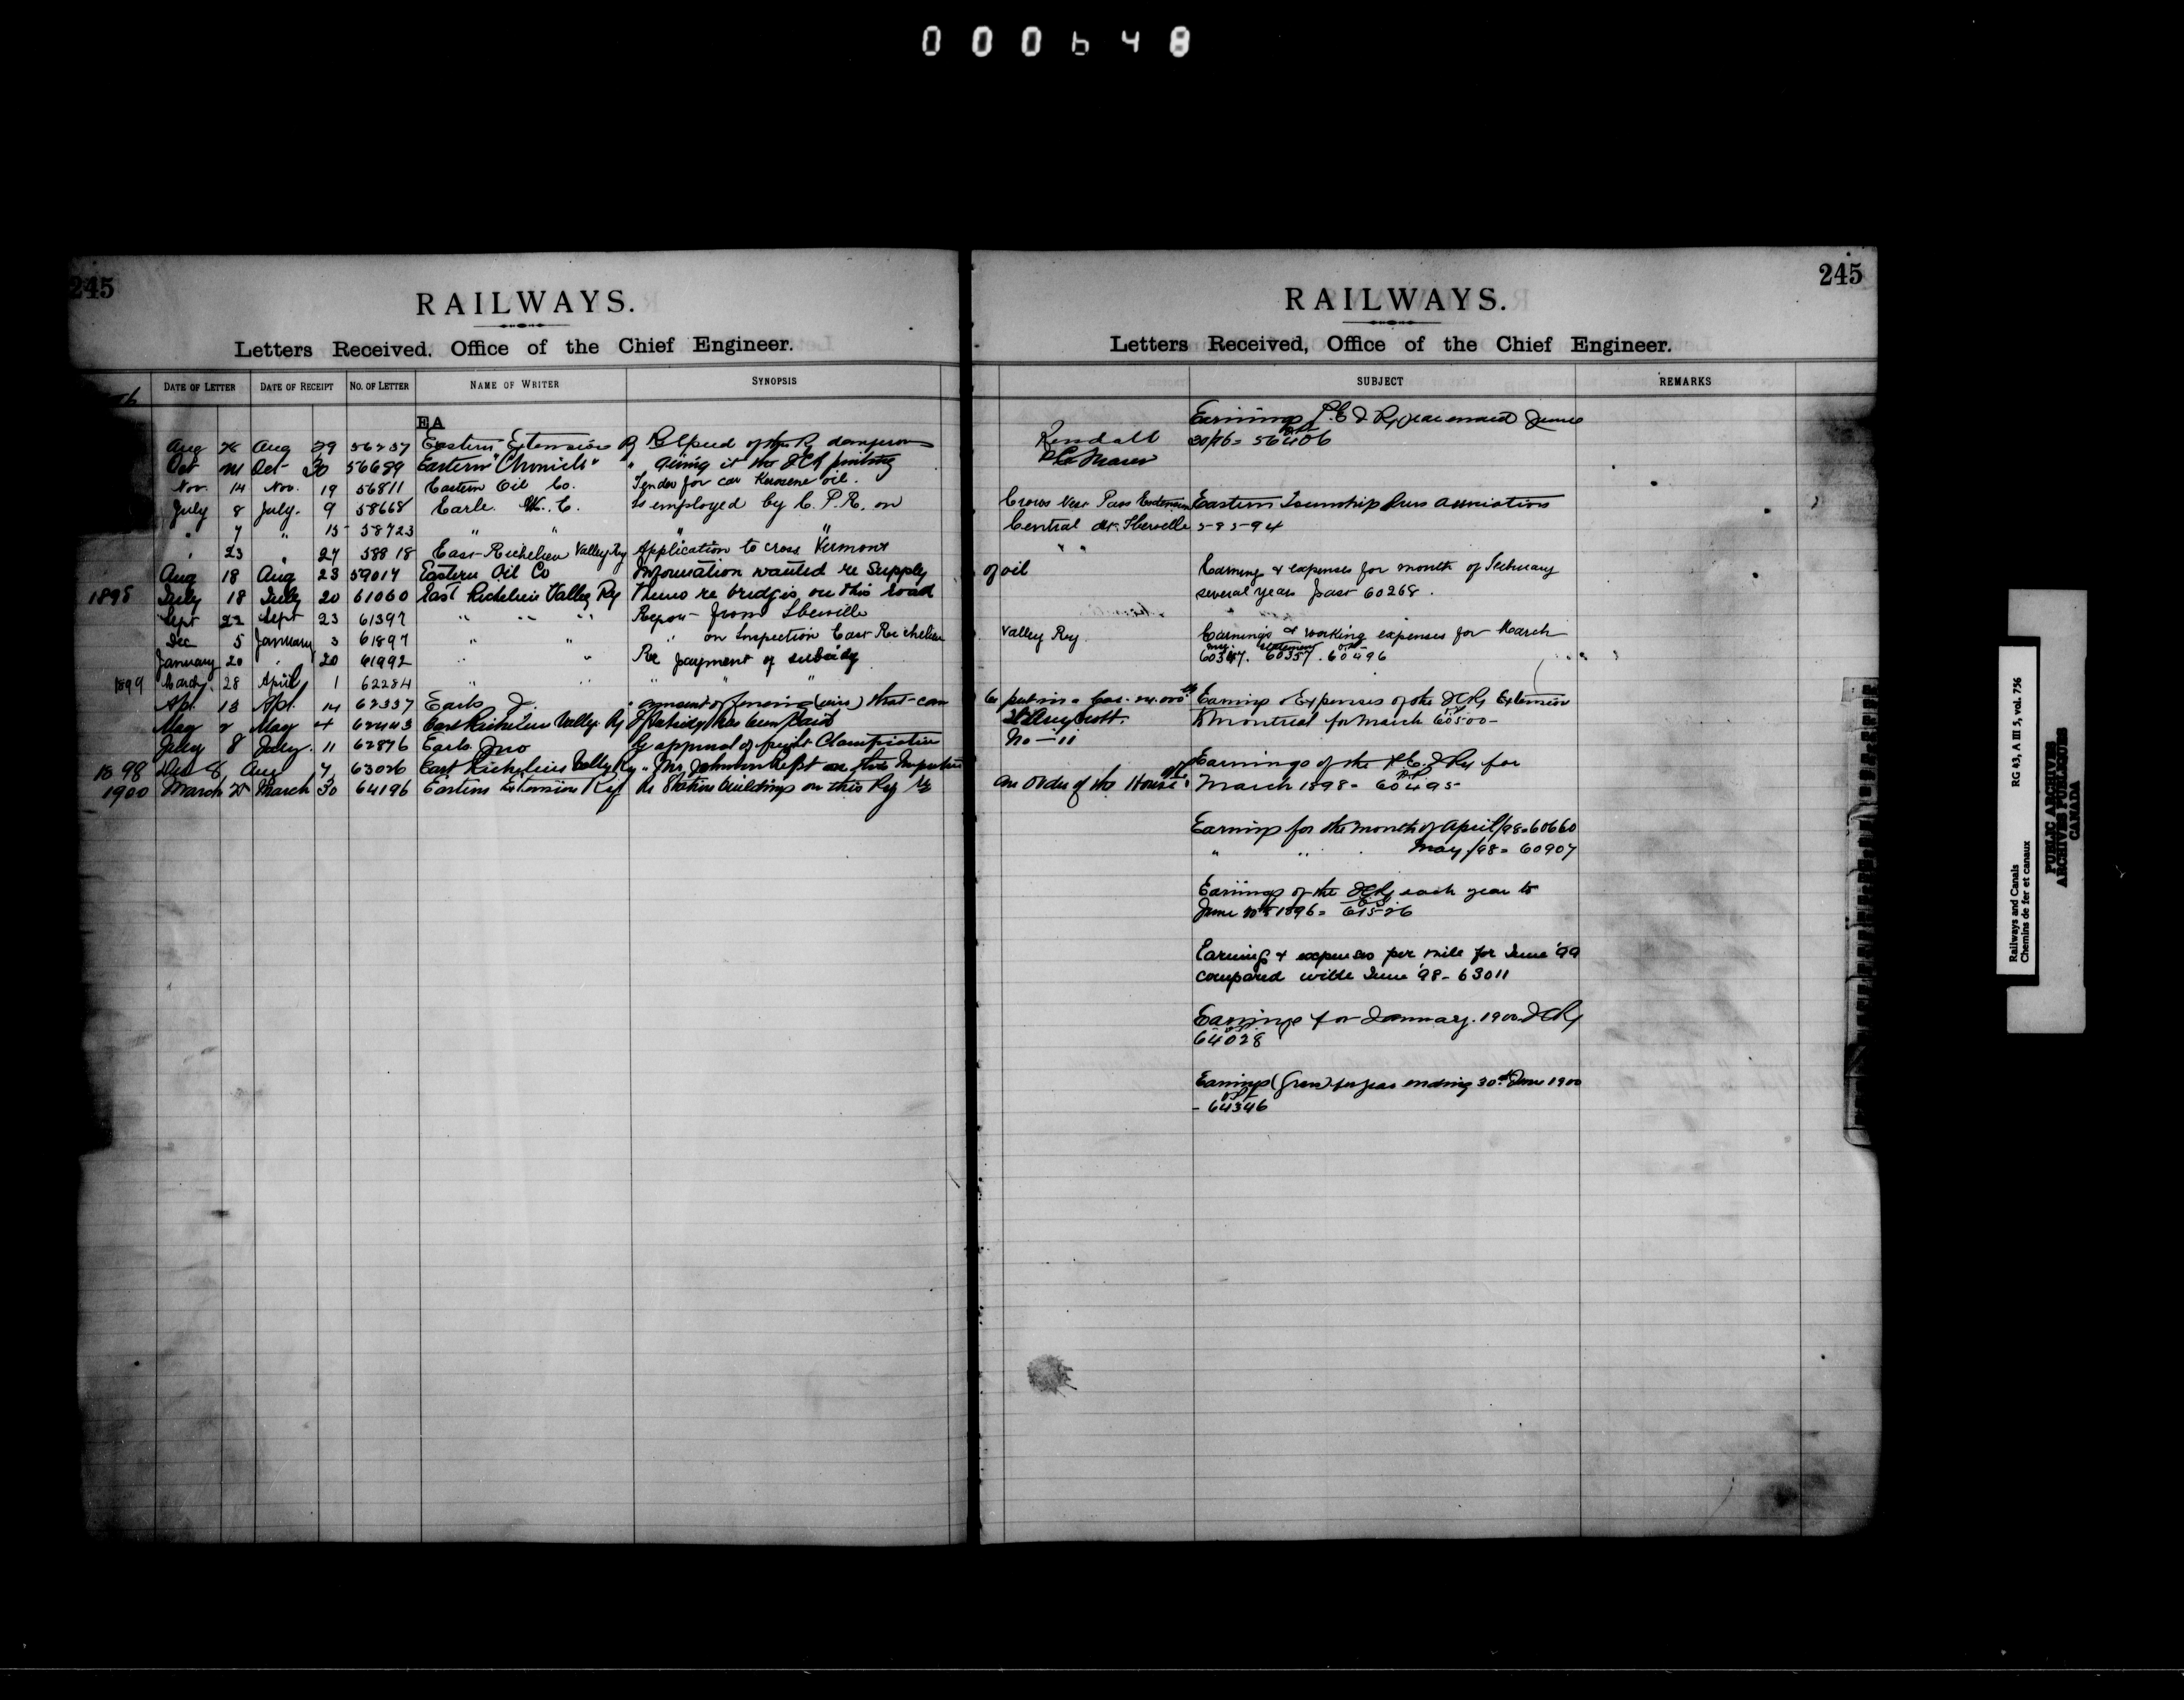 000648
245
RAILWAYS.
Letters Received, Office of the Chief Engineer.
DATE OF LETTER DATE OF RECEIPT NO. OF LETTER NAME OF WRITER SYNOPSIS
EA
Aug 28 Aug 29 56257 Eastern Extension Ry Re Speed of the Ry dangerous
Oct Oct 30 56689 Eastern "Chronicle" " giving it the ICR printing
Nov. 14 Nov. 19 56811 Eastern Oil Co. Tender for car Kerosene oil.
July 8 July. 9 58668 Earle W. C. Is employed by C. P. R. on
" 7 " 15 58723 " " " "
" 23 " 27 58818 East Richelieu Valley Ry Application to cross Vermont
Aug 18 Aug 23 59014 Eastern Oil Co Information wanted re Supply
1898 July 18 July 20 61060 East Richelieu Valley Ry Memo re bridges on this road
Sept 22 Sept 23 61397 " " " Report from Iberville
Dec 5 January 3 61897 " " " on Inspection East Richelieu
January 20 " 20 61992 " " Re payment of subsidy
1899 March 28 April 1 62284 " " " " "
Apl. 13 Apl. 14 62337 Earls J. " amount of fencing (wire) that can
May 2 May 4 62443 East Richelieu Valley Ry If Subsidy has been paid
July 8 July 11 62876 Earls Jno Re approval of freight Classification
1898 Dec 8 Aug 7 63026 East Richelieu Valley Ry " Mr Johnson Rept on the Inspection
1900 March 28 March 30 64196 Eastern Extension Ry Re Station buildings on this Ry
245
RAILWAYS.
Letters Received, Office of the Chief Engineer.
SUBJECT REMARKS
Earnings P.E.I Ry year ended June
Kendall 30/96 = 56406
Crows Nest Pass Extension Eastern Township Press Association
Central at Iberville 58594
" "
of oil Earnings & expenses for month of February
several years past 60268.
Valley Ry. Earnings & working expenses for March
60347. 60357. 60496
Earnings & Expenses of the ICRy Extension
to Montreal for March 60500
No - 11
Earnings of the P.E.I Ry for
an Order of the House March 1898 = 60495
Earnings for the month of April/98 = 60660
" " May /98 = 60907
Earnings of the ICRy each year to
June 30th 1896 = 61526
Earnings & expenses per mile for June '99
compared with June '98 - 63011
Earnings for January. 1900 ICRy
64028
Earnings (Gross) for year ending 30th June 1900
- 64346
Railways and Canals RG 43, A III 5, vol. 756
Chemins de fer et canaux
PUBLIC ARCHIVES
ARCHIVES PUBLIQUES
CANADA